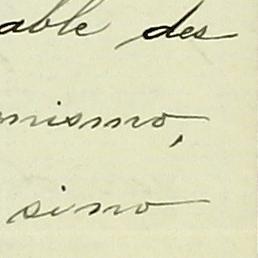 able des
onismo,
sino